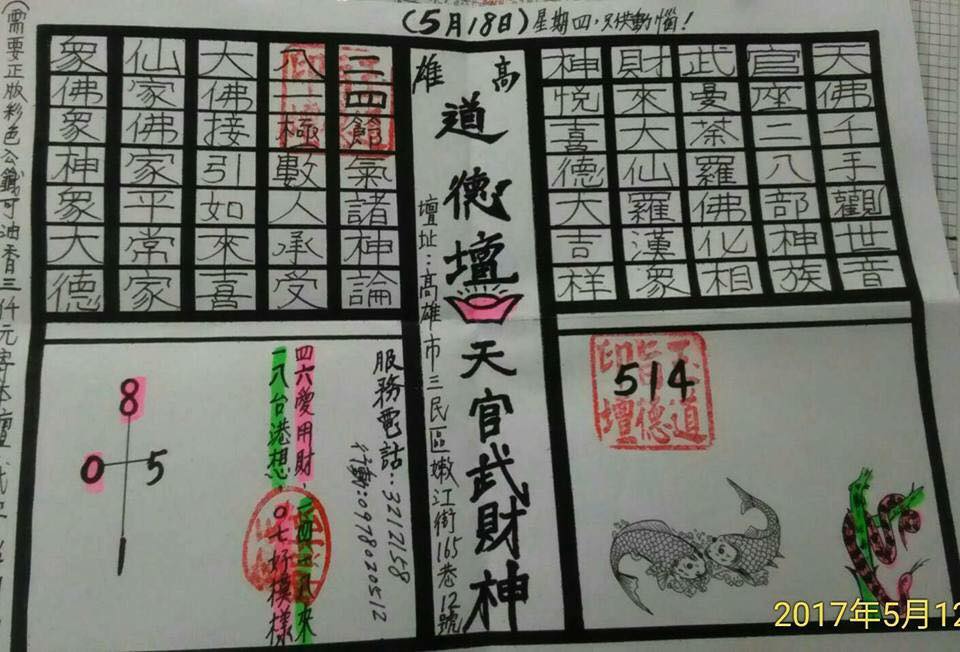 (5月18日)星期四,只供動惱!
天佛千手觀世音
官座二八部神族
武曼荼羅佛化相
財來大仙羅漢衆
神悅喜德大吉祥
高雄
道德壇
天官武財神
壇址:高雄市三民區嫩江街165巷12號
三四館氣諸神論
八一極數人承受
大佛接引如來喜
仙家佛家平常家
衆佛衆神衆大德
514
玉旨道德壇印
服務電話:3212158
行動:0978020512
四六愛用財,二四 八來
一八台港想,0七好模樣
8
0 5
1
(需要正版彩色公籤可油香三仟元寄本壇
2017年5月12